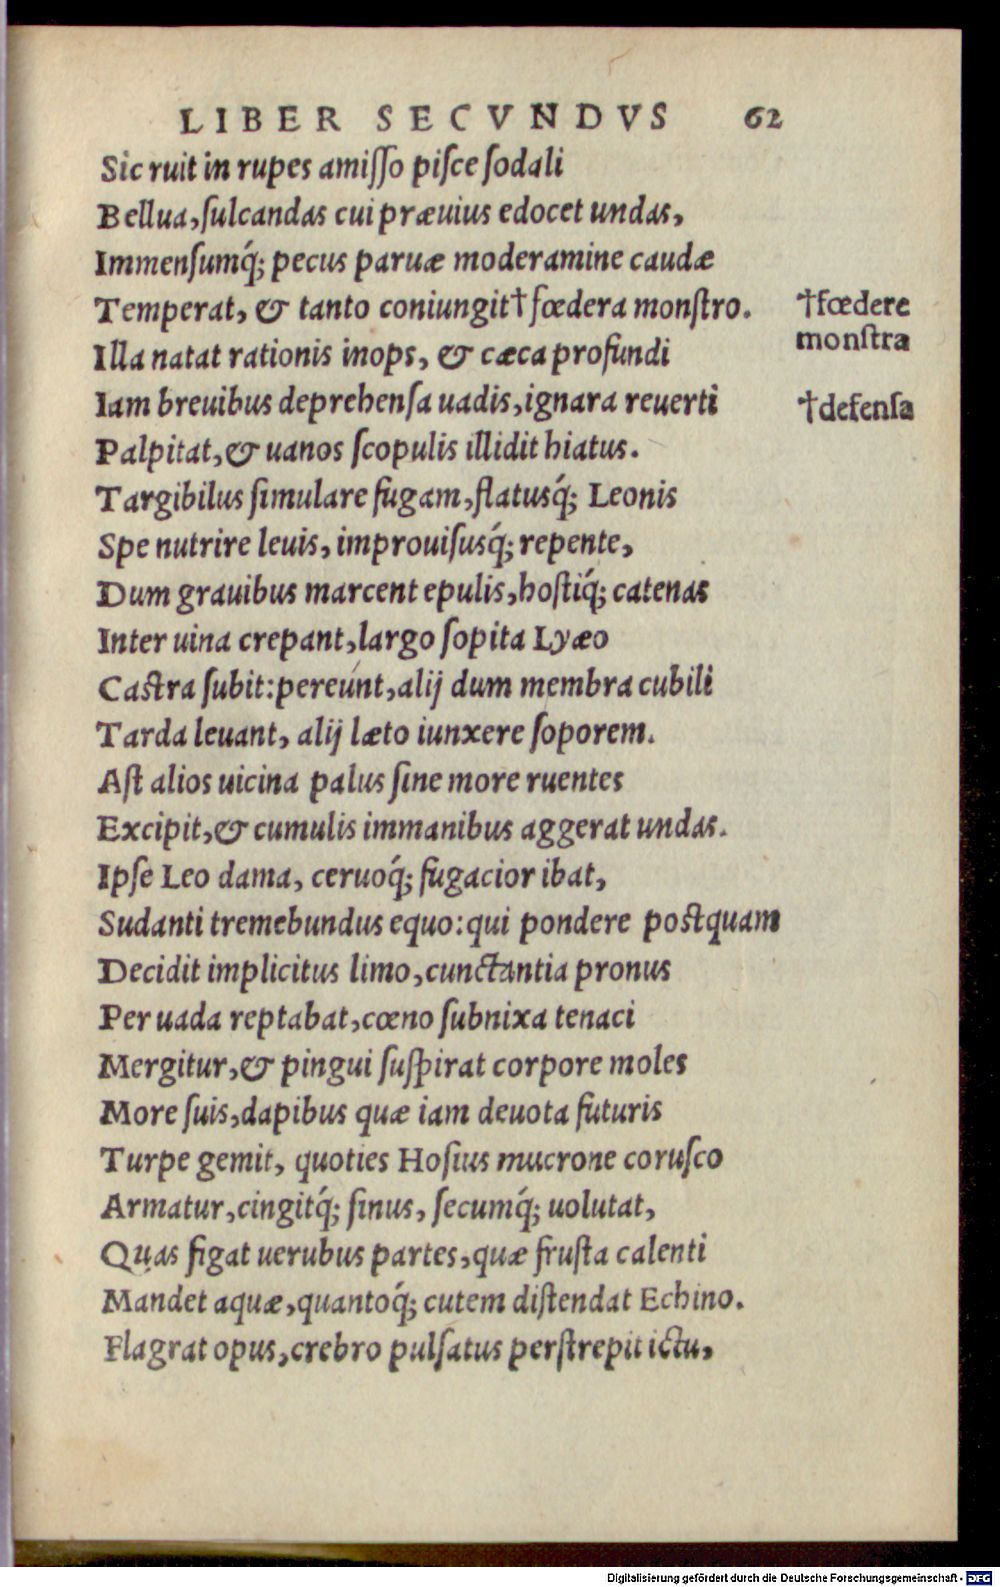 LIBER SECVNDVS 62
Sic ruit in rupes amiſſo piſce ſodali
Bellua,ſulcandas cui præuius edocet undas,
Immenſumq́; pecus paruæ moderamine caudæ
Temperat, & tanto coniungit†fœdera monſtro. †fœdere
monſtra
Illa natat rationis inops, & cæca profundi
Iam breuibus deprehenſa uadis,ignara reuerti †defenſa
Palpitat,& uanos ſcopulis illidit hiatus.
Targibilus ſimulare fugam,flatusq́; Leonis
Spe nutrire leuis, improuiſusq́; repente,
Dum grauibus marcent epulis,hoſtiq́; catenas
Inter uina crepant,largo ſopita Lyæo
Caſtra ſubit:pereunt,alij dum membra cubili
Tarda leuant, alij læto iunxere ſoporem.
Aſt alios uicina palus ſine more ruentes
Excipit,& cumulis immanibus aggerat undas.
Ipſe Leo dama, ceruoq́; fugacior ibat,
Sudanti tremebundus equo:qui pondere postquam
Decidit implicitus limo,cunctantia pronus
Per uada reptabat,cœno ſubnixa tenaci
Mergitur,& pingui ſuſpirat corpore moles
More ſuis,dapibus quæ iam deuota futuris
Turpe gemit, quoties Hoſius mucrone coruſco
Armatur,cingitq́; ſinus, ſecumq́; uolutat,
Quas figat uerubus partes,quæ fruſta calenti
Mandet aquæ,quantoq́; cutem diſtendat Echino.
Flagrat opus,crebro pulſatus perſtrepit ictu,
Digitalisierung gefördert durch die Deutsche Forschungsgemeinschaft - DFG